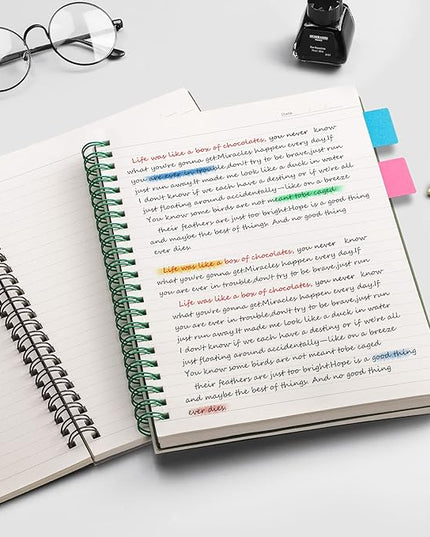 Date
Life was like a box of chocolates, you never know
what you're gonna get.Miracles happen every day.If
you are ever in trouble,don't try to be brave,just run
just run away.It made me look like a duck in water
I don't know if we each have a destiny or if we're all
just floating around accidentally—like on a breeze
You know some birds are not meant tobe caged
their feathers are just too bright.Hope is a good thing
and maybe the best of things. And no good thing
ever dies.
Life was like a box of chocolates, you never know
what you're gonna get.Miracles happen every day.If
you are ever in trouble.don't try to be brave,just run
Life was like a box of chocolates, you never know
what you're gonna get.Miracles happen every day.If
you are ever in trouble,don't try to be brave,just run
just run away.It made me look like a duck in water
I don't know if we each have a destiny or if we're all
just floating around accidentally—like on a breeze
You know some birds are not meant tobe caged
their feathers are just too bright.Hope is a good thing
and maybe the best of things. And no good thing
ever dies.